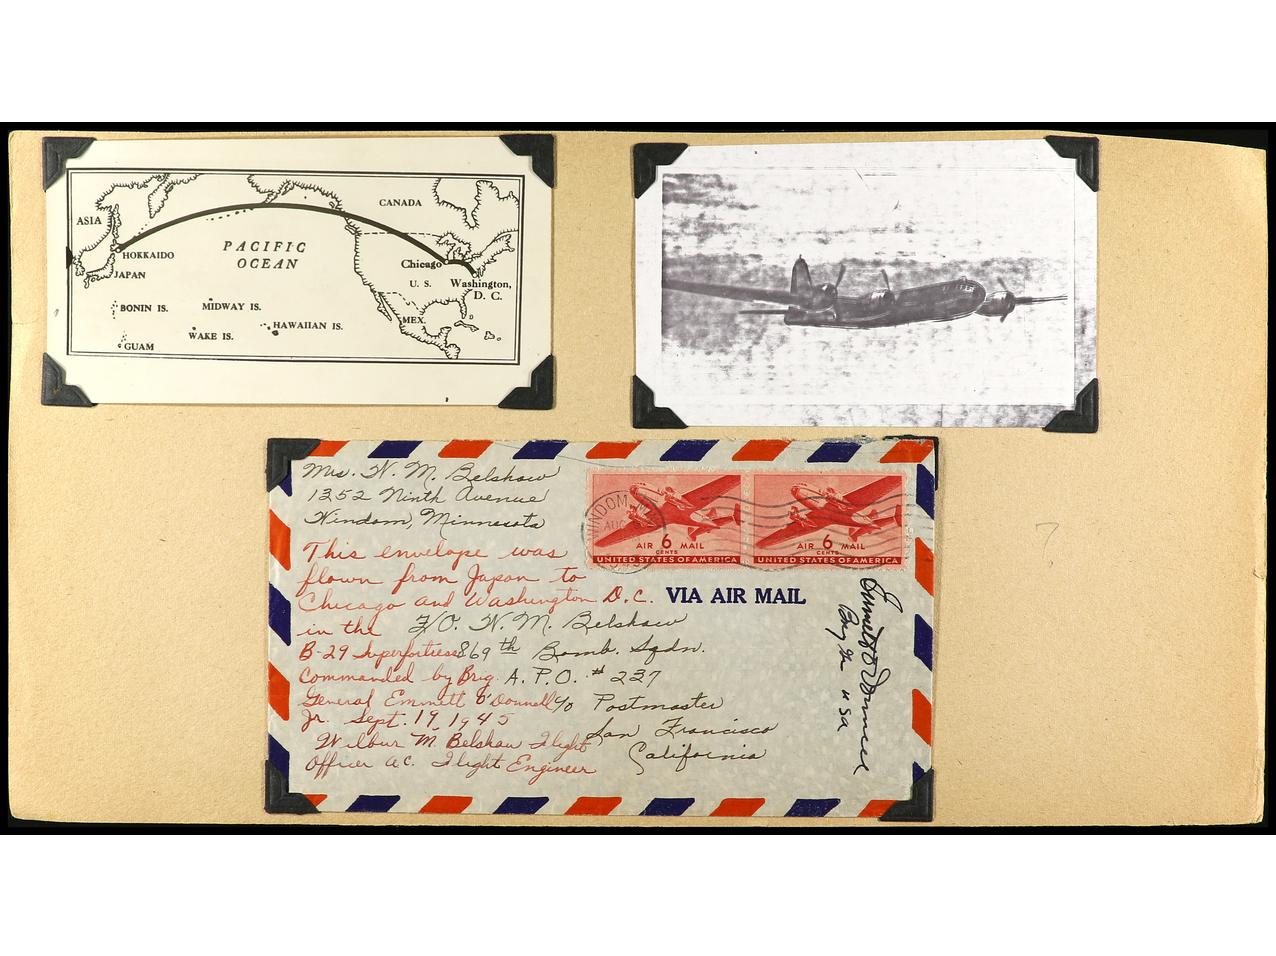 ASIA
CANADA
PACIFIC
OCEAN
HOKKAIDO
JAPAN
Chicago
U. S.
Washington,
D. C.
BONIN IS.
MIDWAY IS.
MEX.
WAKE IS.
HAWAIIAN IS.
GUAM
Mrs. W. M. Belshaw
1352 Ninth Avenue
Windom, Minnesota
WINDOM, M
AUG
AIR 6 MAIL
CENTS
UNITED STATES OF AMERICA
AIR 6 MAIL
CENTS
UNITED STATES OF AMERICA
VIA AIR MAIL
This envelope was
flown from Japan to
Chicago and Washington D.C.
in the
B-29 Superfortress
Commanded by Brig.
General Emmett O'Donnell
Jr. Sept. 19, 1945
Wilbur M. Belshaw Flight
Officer A.C. Flight Engineer
F/O. W. M. Belshaw
869th Bomb. Sqdn.
A. P. O. # 237
c/o Postmaster
San Francisco
California
Emmett O'Donnell
Brig Gen USA
7